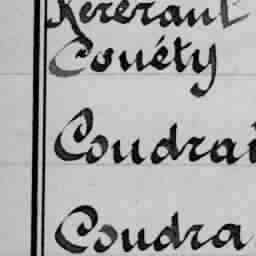 Kerérault
Couéty
Coudrai
Coudra